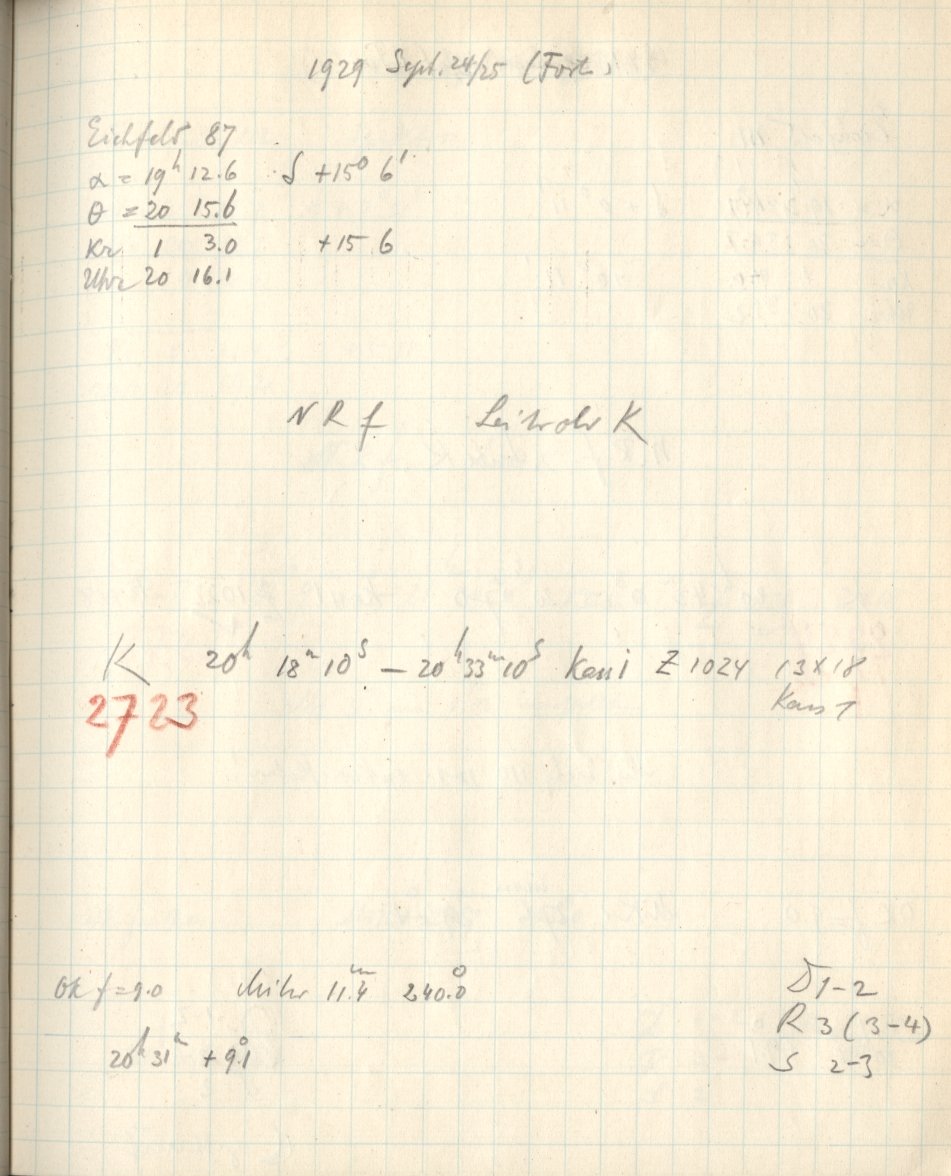 1929 Sept. 24/25 (Forts.)
Eichfeld 87
α = 19ʰ 12.6 δ +15° 6'
θ = 20 15.6
Kr. 1 3.0 +15 6
Uhr 20 16.1
N R f Leitrohr K
K 20ʰ 18ᵐ 10ˢ — 20ʰ 33ᵐ 10ˢ Z 1024 13×18
2723
Ok f = 9.0 11.4ᵐ 240.0°
D 1-2
R 3 (3-4)
20ʰ 31ᵐ +9.°1
S 2-3